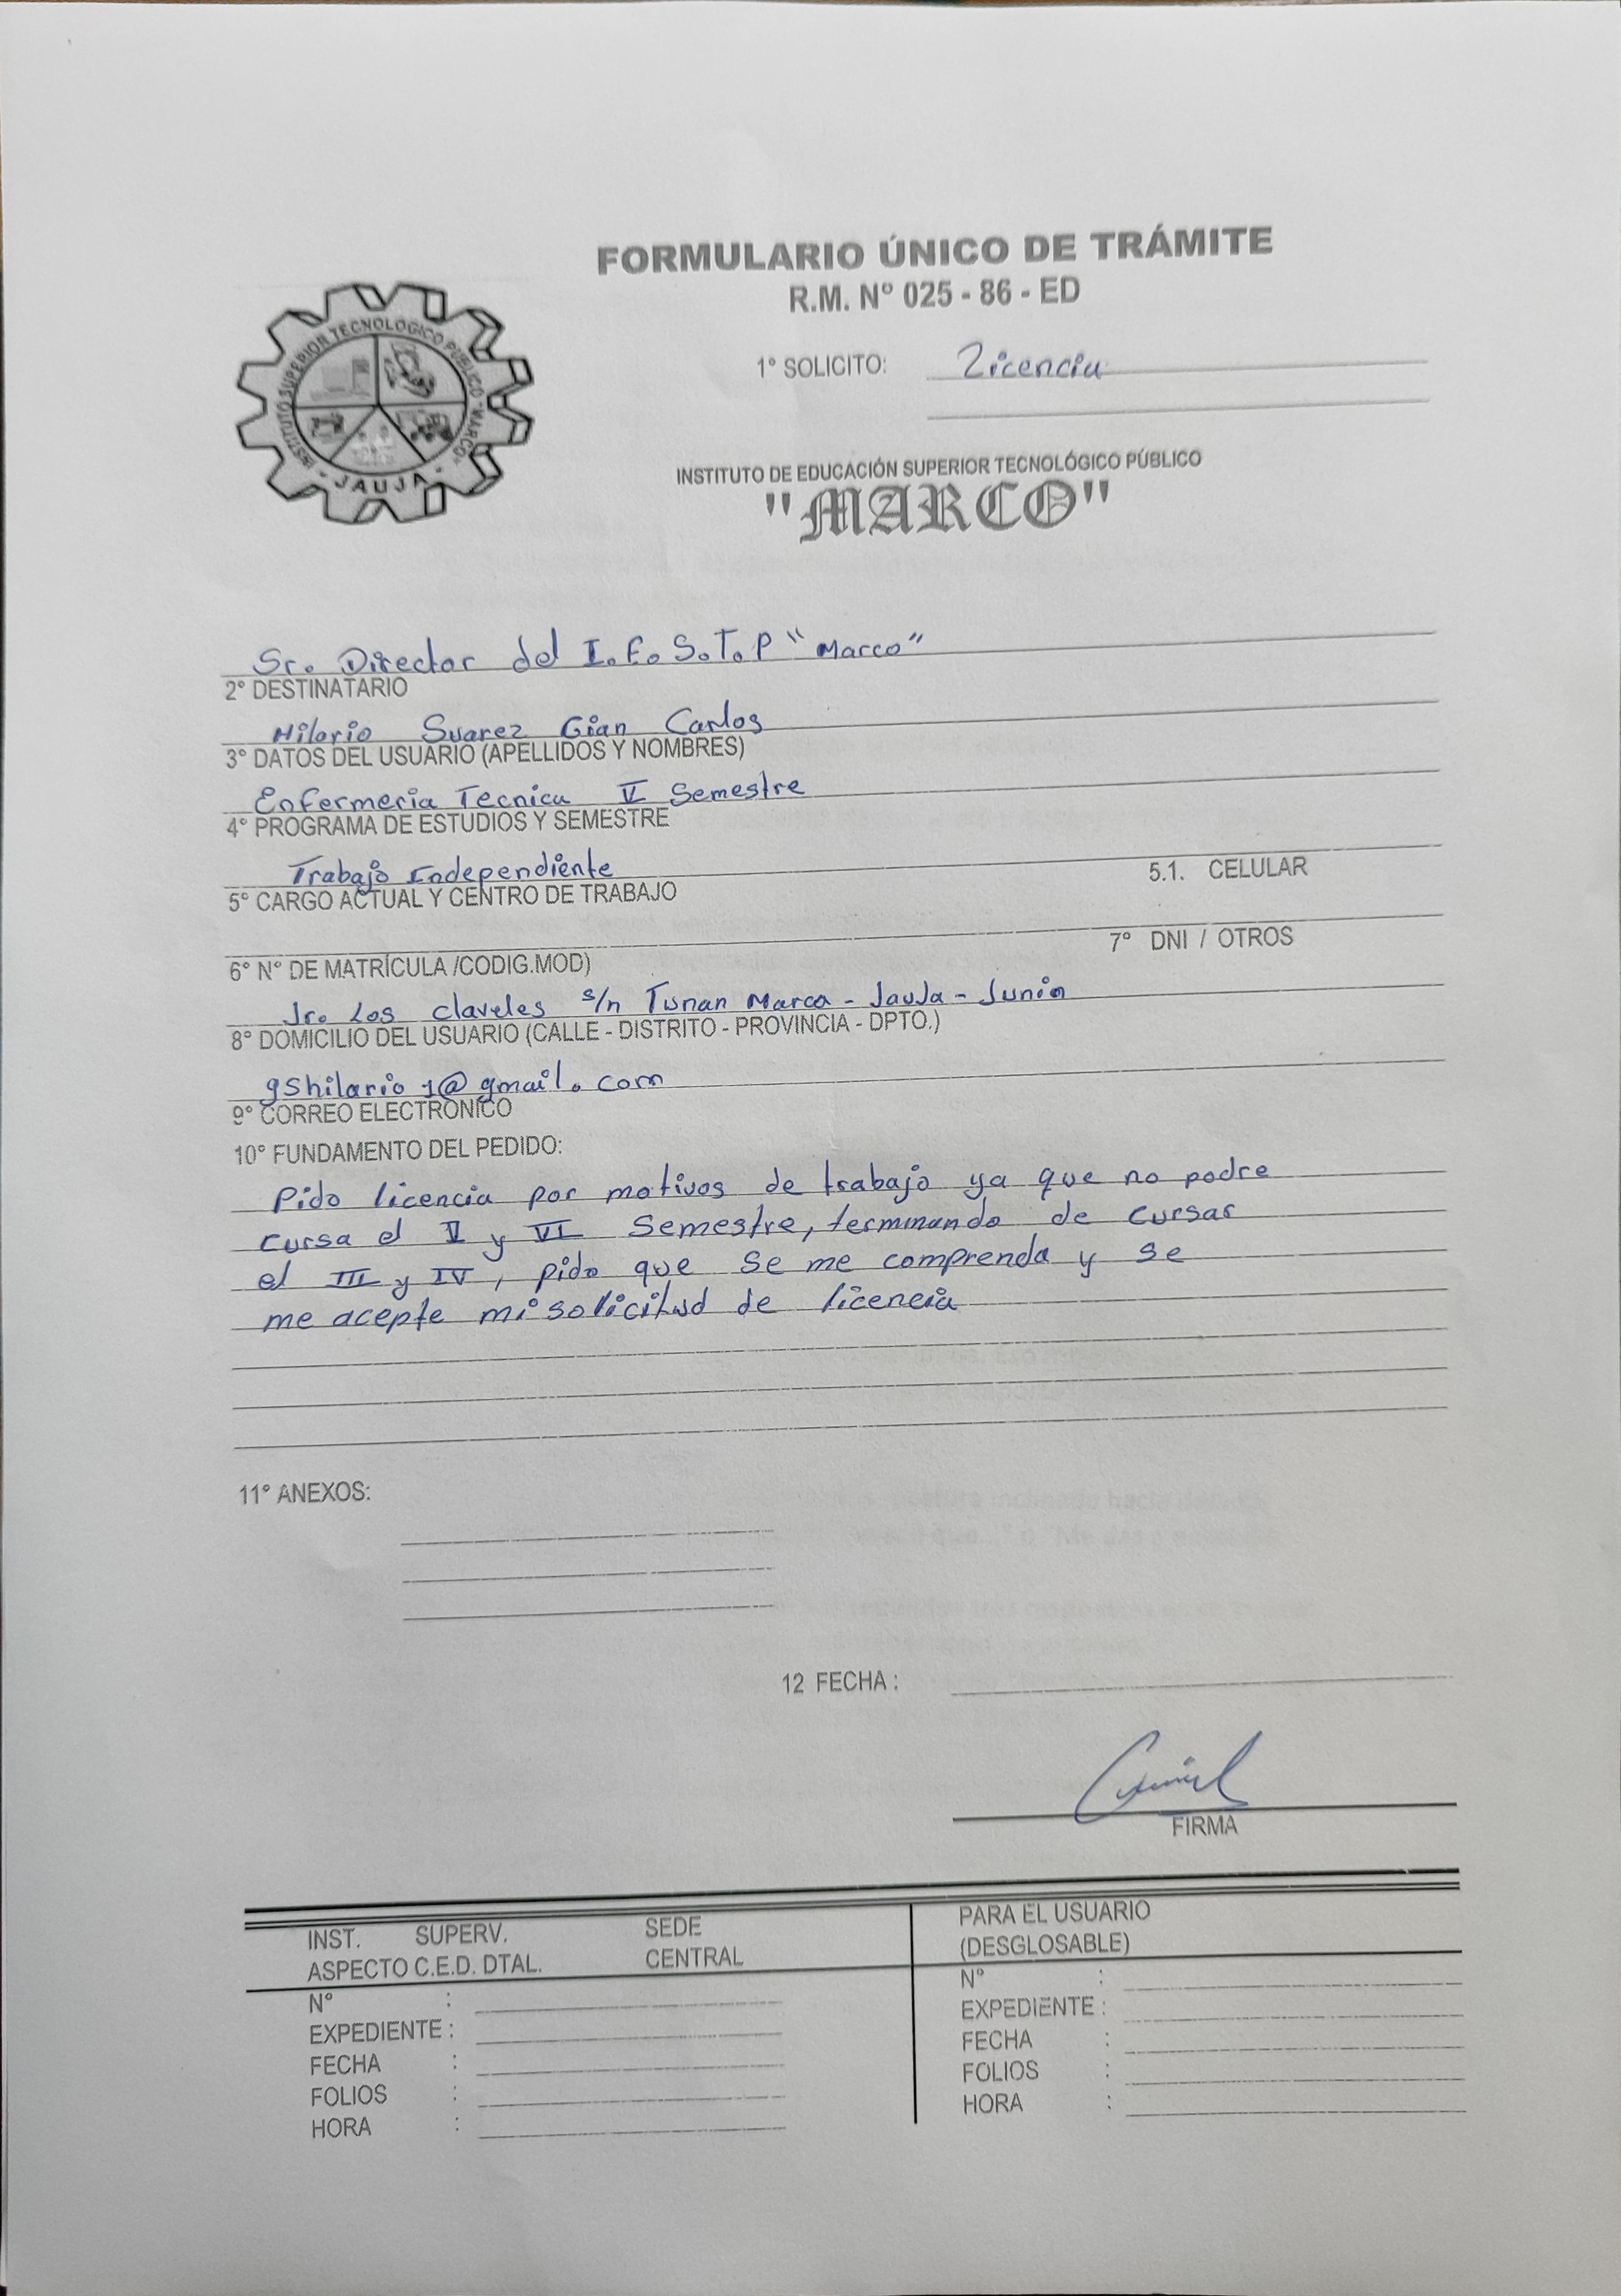 FORMULARIO ÚNICO DE TRÁMITE
R.M. Nº 025 - 86 - ED
INSTITUTO SUPERIOR TECNOLOGICO PUBLICO "MARCO"
- JAUJA -
1° SOLICITO: Licencia
INSTITUTO DE EDUCACIÓN SUPERIOR TECNOLÓGICO PÚBLICO
"MARCO"
Sr. Director del I.E.S.T.P "Marco"
2° DESTINATARIO
Hilario Suarez Gian Carlos
3° DATOS DEL USUARIO (APELLIDOS Y NOMBRES)
Enfermeria Tecnica V Semestre
4° PROGRAMA DE ESTUDIOS Y SEMESTRE
Trabajo Independiente
5° CARGO ACTUAL Y CENTRO DE TRABAJO 5.1. CELULAR
6° N° DE MATRÍCULA /CODIG.MOD) 7° DNI / OTROS
Jr. Los claveles s/n Tunan Marca - Jauja - Junin
8° DOMICILIO DEL USUARIO (CALLE - DISTRITO - PROVINCIA - DPTO.)
gshilario1@gmail.com
9° CORREO ELECTRÓNICO
10° FUNDAMENTO DEL PEDIDO:
Pido licencia por motivos de trabajo ya que no podre
cursa el V y VI Semestre, terminando de cursar
el III y IV, pido que se me comprenda y se
me acepte mi solicitud de licencia
11° ANEXOS:
12 FECHA :
FIRMA
INST. SUPERV. SEDE
ASPECTO C.E.D. DTAL. CENTRAL
N° :
EXPEDIENTE :
FECHA :
FOLIOS :
HORA :
PARA EL USUARIO
(DESGLOSABLE)
N° :
EXPEDIENTE :
FECHA :
FOLIOS :
HORA :